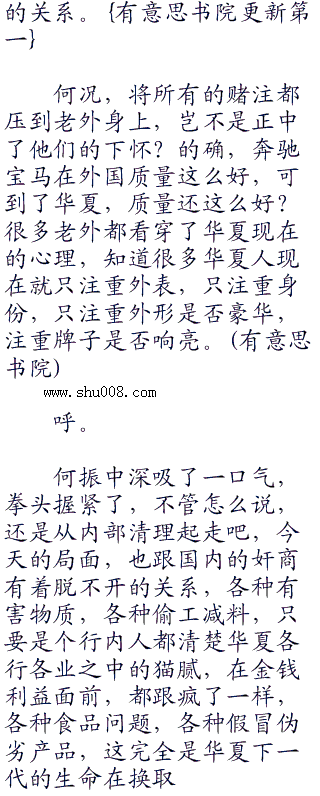 的关系。{有意思书院更新第
一}
何况，将所有的赌注都
压到老外身上，岂不是正中
了他们的下怀？的确，奔驰
宝马在外国质量这么好，可
到了华夏，质量还这么好？
很多老外都看穿了华夏现在
的心理，知道很多华夏人现
在就只注重外表，只注重身
份，只注重外形是否豪华，
注重牌子是否响亮。(有意思
书院)
www.shu008.com
呼。
何振中深吸了一口气，
拳头握紧了，不管怎么说，
还是从内部清理起走吧，今
天的局面，也跟国内的奸商
有着脱不开的关系，各种有
害物质，各种偷工减料，只
要是个行内人都清楚华夏各
行各业之中的猫腻，在金钱
利益面前，都跟疯了一样，
各种食品问题，各种假冒伪
劣产品，这完全是华夏下一
代的生命在换取